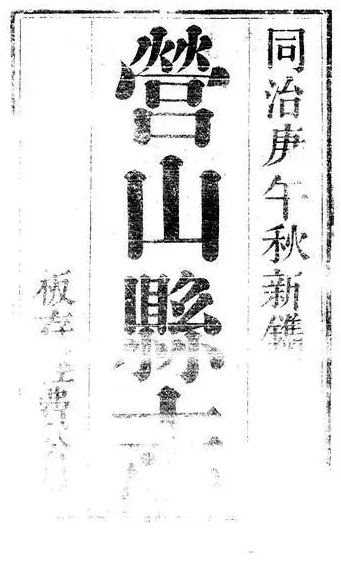 同治庚午秋新鐫
營山縣志
板存